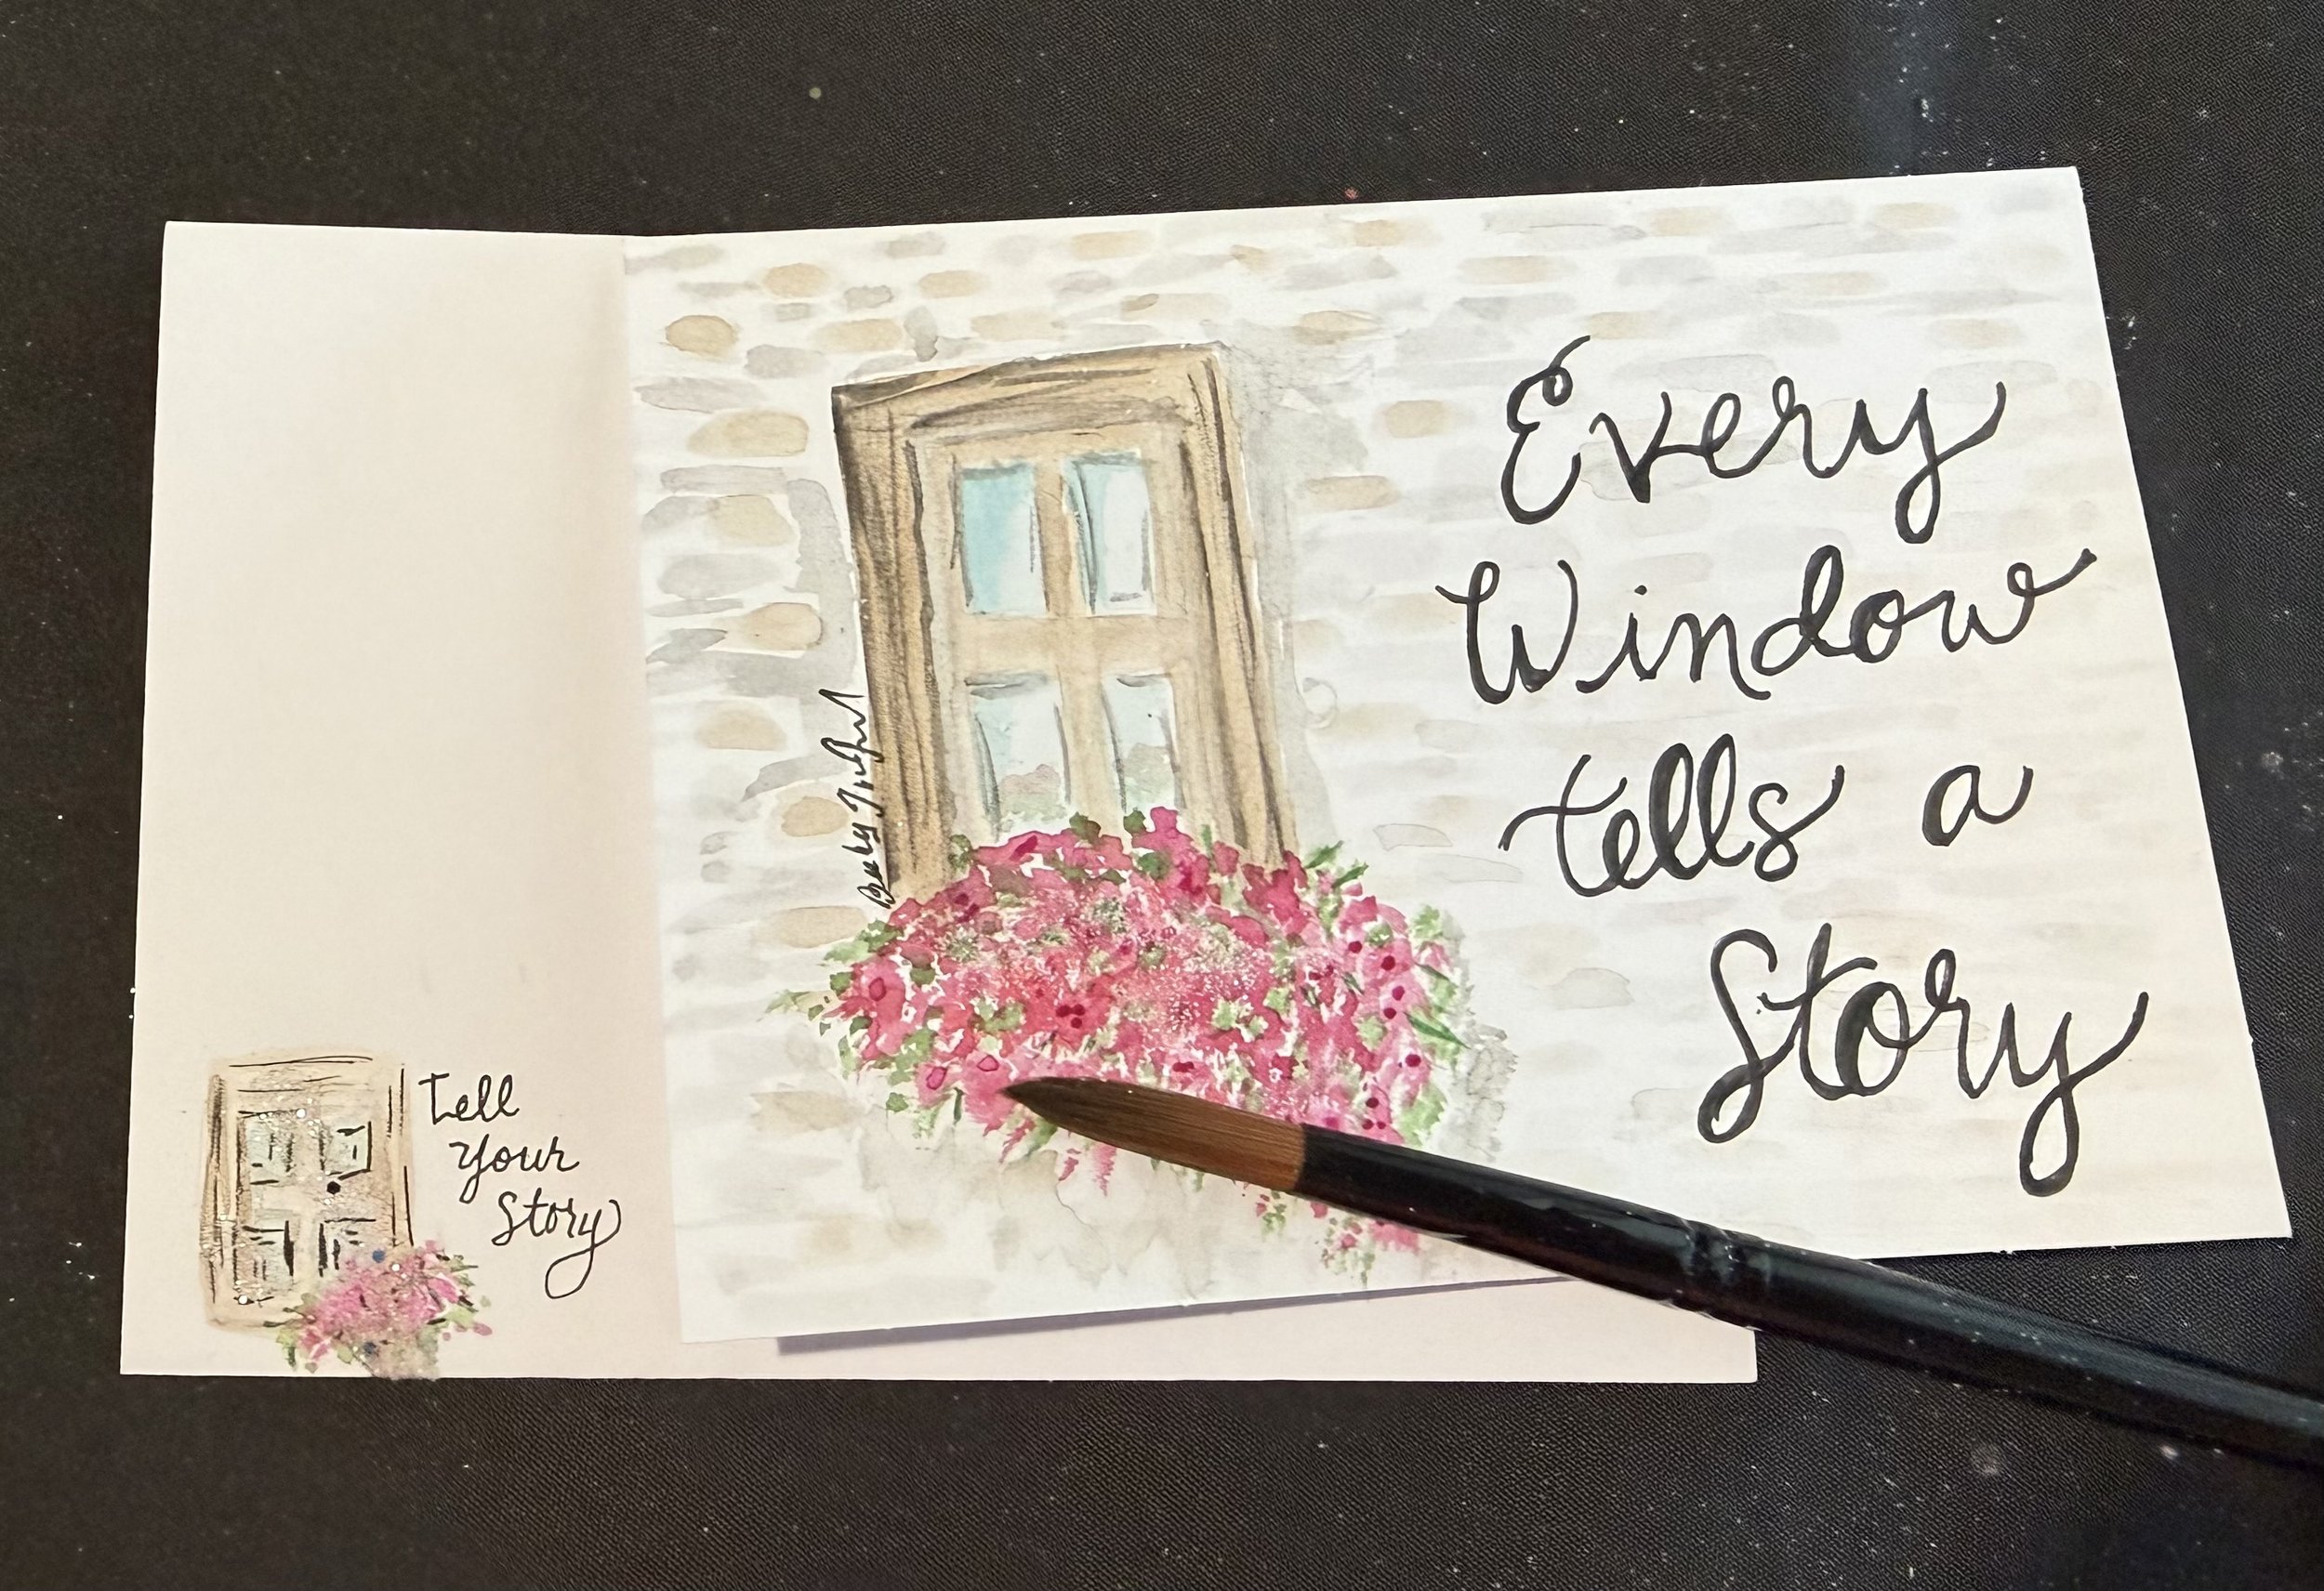 Every
Window
tells a
Story
Tell
Your
Story